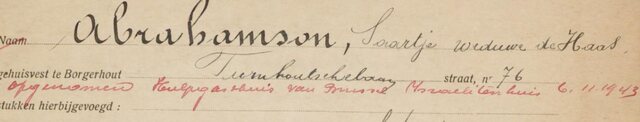 Naam Abrahamson, Saartje weduwe de Haas.
gehuisvest te Borgerhout Turnhoutschebaan straat, nr 76
opgenomen Hulpgasthuis van Brussel Israelitenhuis 6.11.1943
stukken hierbijgevoegd :